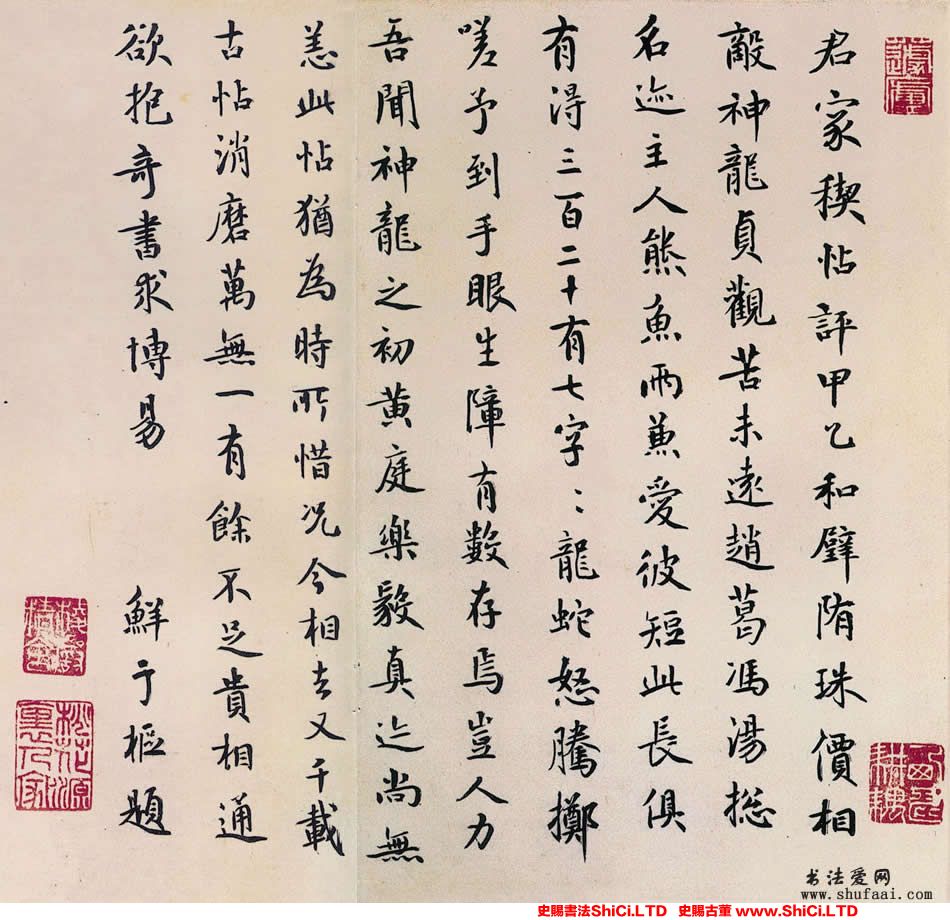 君家稧帖評甲乙和璧隋珠價相
敵神龍貞觀苦未遠趙葛馮湯揔
名迹主人熊魚兩兼愛彼短此長俱
有淂三百二十有七字〻龍蛇怒騰擲
嗟予到手眼生障有數存焉豈人力
吾聞神龍之初黄庭樂毅真迹尚無
恙此帖猶為時所惜况今相去又千載
古帖消磨萬無一有餘不足貴相通
欲抱奇書求博易
鮮于樞題
书法爱网
www.shufaai.com
史賜書法ShiCi.LTD 史賜古董 www.ShiCi.LTD